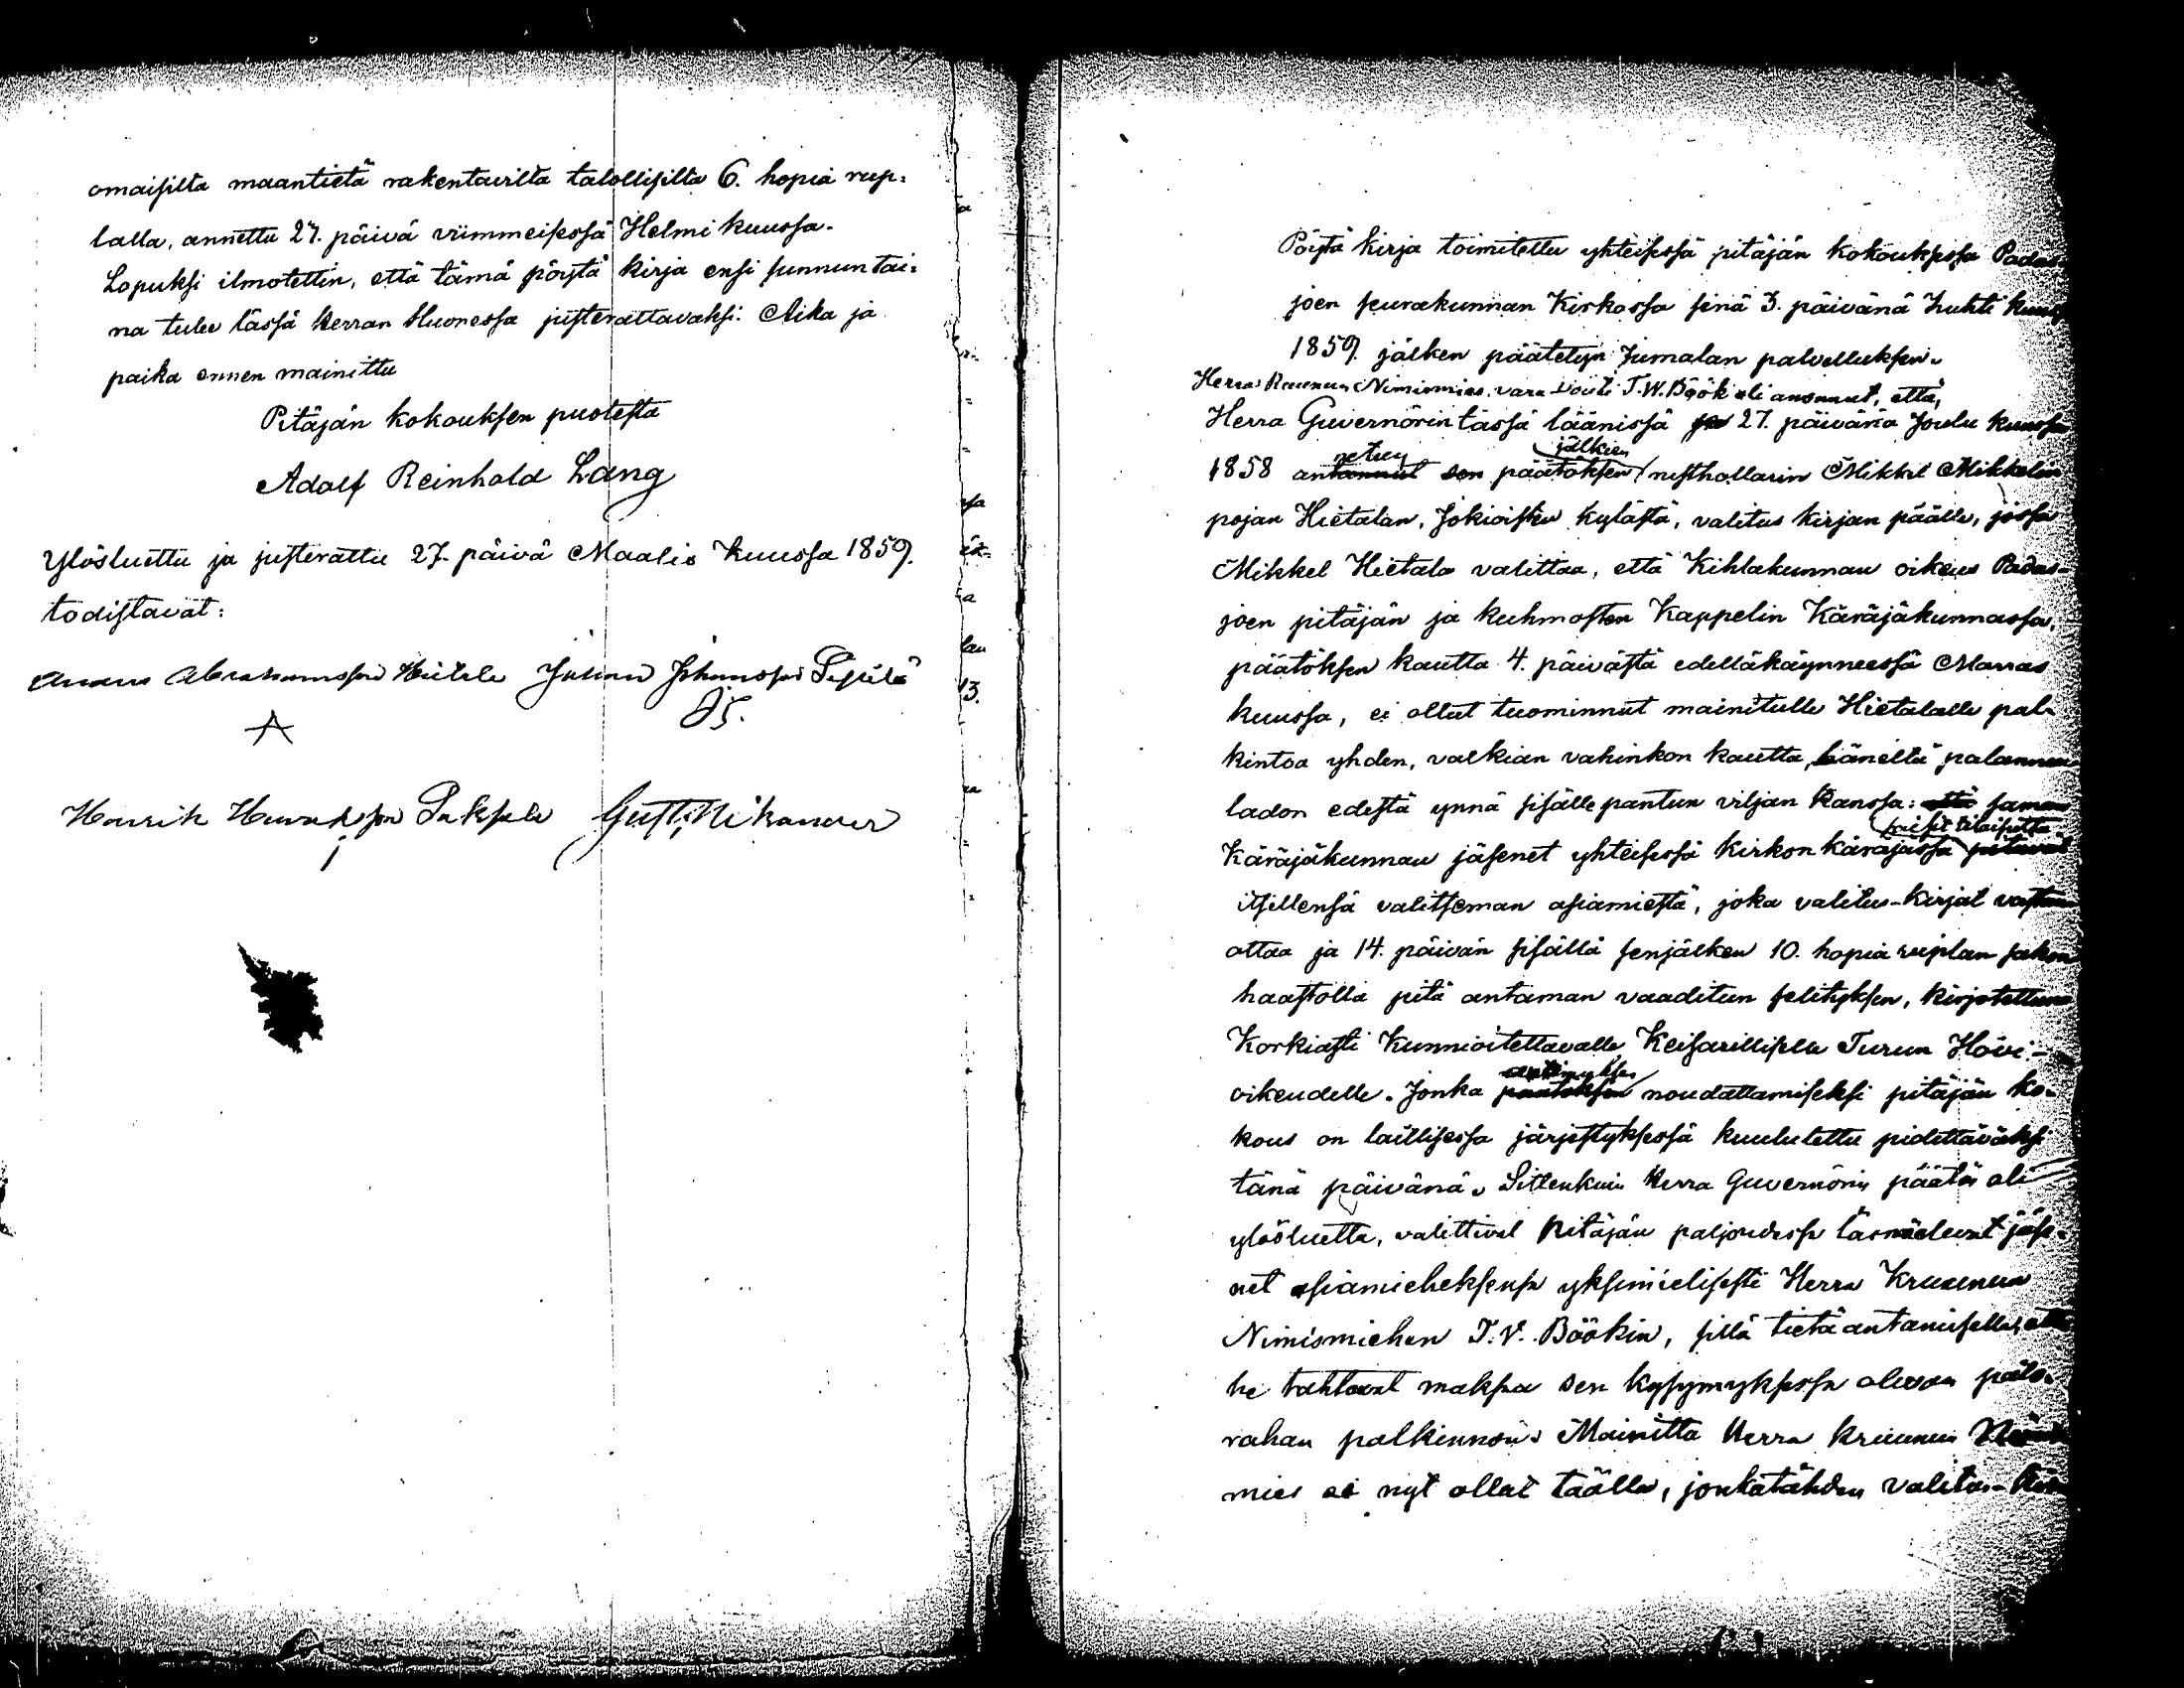 omaisilta maantietä rakentavilta talollisilta 6. hopia rup=
lalla, annettu 27. päivä viimmeisessä Helmi kuussa.
Lopuksi ilmotettin, että tämä pöytä kirja ensi sunnuntai=
na tulee tässä kerran huonessa justerattavaksi. Aika ja
paika ennen mainittu
Pitäjän kokouksen puolesta
Adolf Reinhold Lang
Ylösluettu ja justerattu 27. päivä Maalis kuussa 1859.
todistavat:
Abrahamsson Heitele Juhan Johansson
A JS.
Henrik Gust. Nikander
Pöytä kirja toimitettu yhteisessä pitäjän kokouksessa Padas-
joen seurakunnan Kirkossa sinä 3. päivänä Huhti kuus
1859. jälken päätetyn Jumalan palvelluksen.
Herra Kruunun Nimismies, vara Vouti T. W. Böök oli anonnut, että,
Herra Guvernörin tässä läänissä 27. päivänä Joulu kuussa
netun jälkeen
1858 antannut sen päätöksen rusthollarin Mikkel Mikkelin
pojan Hietalan, Jokioisten kylästä, valitus kirjan päälle, jossa
Mikkel Hietala valittaa, että Kihlakunnan oikeus Padas-
joen pitäjän ja kuhmosten Kappelin Käräjäkunnassa,
päätöksen kautta 4. päivästä edelläkäynneessä Marras
kuussa, ei ollut tuominnut mainitulle Hietalalle pal-
kintoa yhden, valkian vahinkon kautta, häneltä palannen
ladon edestä ynnä sisälle pantun viljan kanssa: että saman
Käräjäkunnan jäsenet yhteisessä kirkon käräjässä pitävät
itsillensä valitseman asiamiestä, joka valitus-kirjat vastan
ottaa ja 14. päivän sisällä senjälken 10. hopia ruplan sakon
haastolla pitä antaman vaaditun selityksen, kirjotettuna
Korkiasti Kunnioitettavalle Keisarillisele Turun Hovi-
oikeudelle. Jonka päätöksen noudattamiseksi pitäjän ko-
kous on laillisessa järjestyksessä kuulutettu pidettäväksi
tänä päivänä. Sittenkuin Herra Guvernörin päätös oli
ylösluettu, valittivat Pitäjän paljoudessa läsnäolevat jäse-
net asiamieheksensä yksimielisesti Herra Kruunun
Nimismiehen T. V. Böökin, sillä tietä antamisella, että
he tahtovat maksaa sen kysymyksessä olevan palo-
rahan palkinnon. Mainittu Herra kruunun Nimis
mies ei nyt ollut täällä, jonkatähden valitus-kir